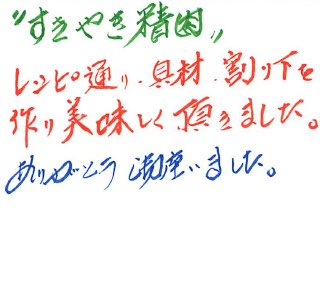 "すきやき精肉"
レシピ通り、具材、割り下を
作り美味しく頂きました。
ありがとう御座いました。